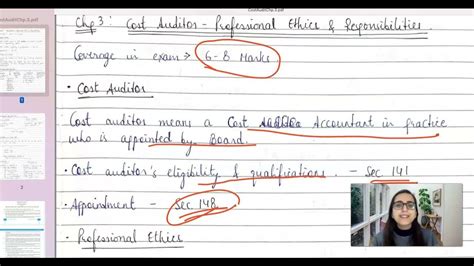 CostAuditChp 3.pdf
Chp 3 : Cost Auditor - Professional Ethics & Responsibilities
Coverage in exam → 6-8 Marks
• Cost Auditor
Cost auditor means a Cost Accountant in practice
who is appointed by Board.
• Cost auditor's eligibility & qualifications. - Sec. 141
• Appointment - Sec. 148
• Professional Ethics